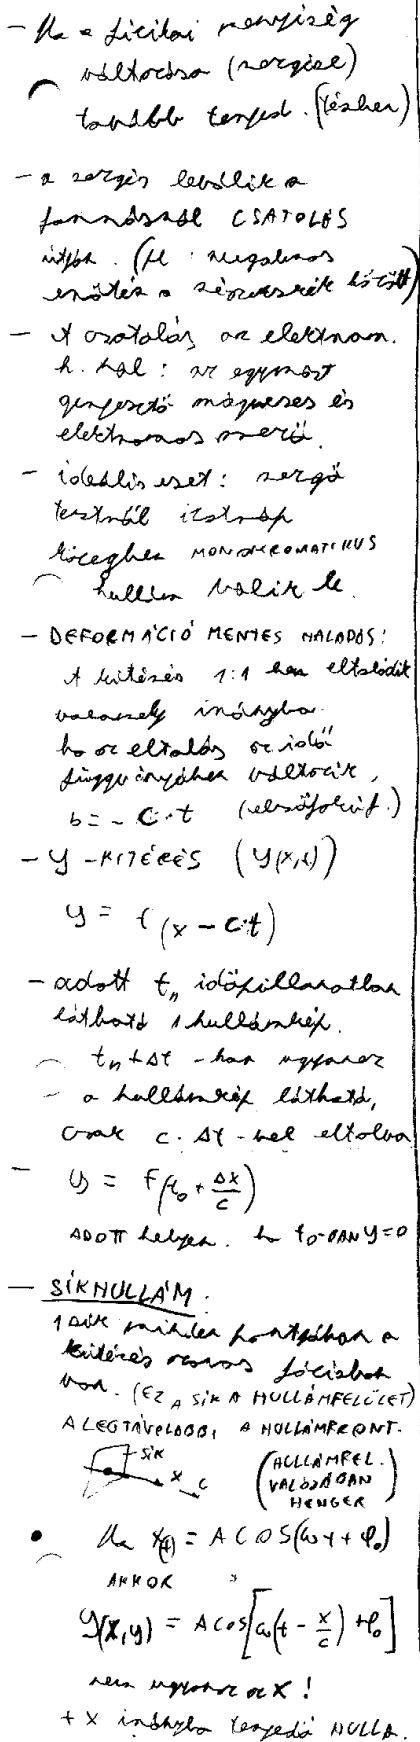 - Ha a fizikai mennyiség
változása (rezgése)
tovább terjed. (térben)
- a rezgés leválik a
forrásról CSATOLÁS
útján. (pl : rugalmas
erőtér a részecskék között)
- A csatolás az elektrom.
h. nál : az egymást
gerjesztő mágneses és
elektromos mező.
- ideális eset : rezgő
testnél izotróp
közegben MONOKROMATIKUS
hullám válik le.
- DEFORMÁCIÓ MENTES HALADÁS:
A kitérés 1:1 ben eltolódik
valamely irányba.
ha az eltolás az idő
függvényében változik,
b = - c·t (elsőfokú f.)
- y - KITÉRÉS (y(x,t))
y = f(x - c·t)
- adott tₙ időpillanatban
látható 1 hullámkép.
tₙ + Δt - ban ugyanez
- a hullámkép látható,
csak c · Δt - vel eltolva
- y = f(t₀ + Δx/c)
ADOTT helyen. ha t₀-BAN y=0
- SÍKHULLÁM.
1 sík minden pontjában a
kitérés azonos fázisban
van. (EZ A SÍK A HULLÁMFELÜLET)
A LEGTÁVOLABBI A HULLÁMFRONT.
SÍK
x c
(HULLÁMFEL.
VALÓJÁBAN
HENGER)
• Ha x(t) = A COS(ωt + φ₀)
AKKOR
y(x,y) = A cos[ω(t - x/c) + φ₀]
nem ugyanaz az x !
+ x irányba terjedő HULLÁ.